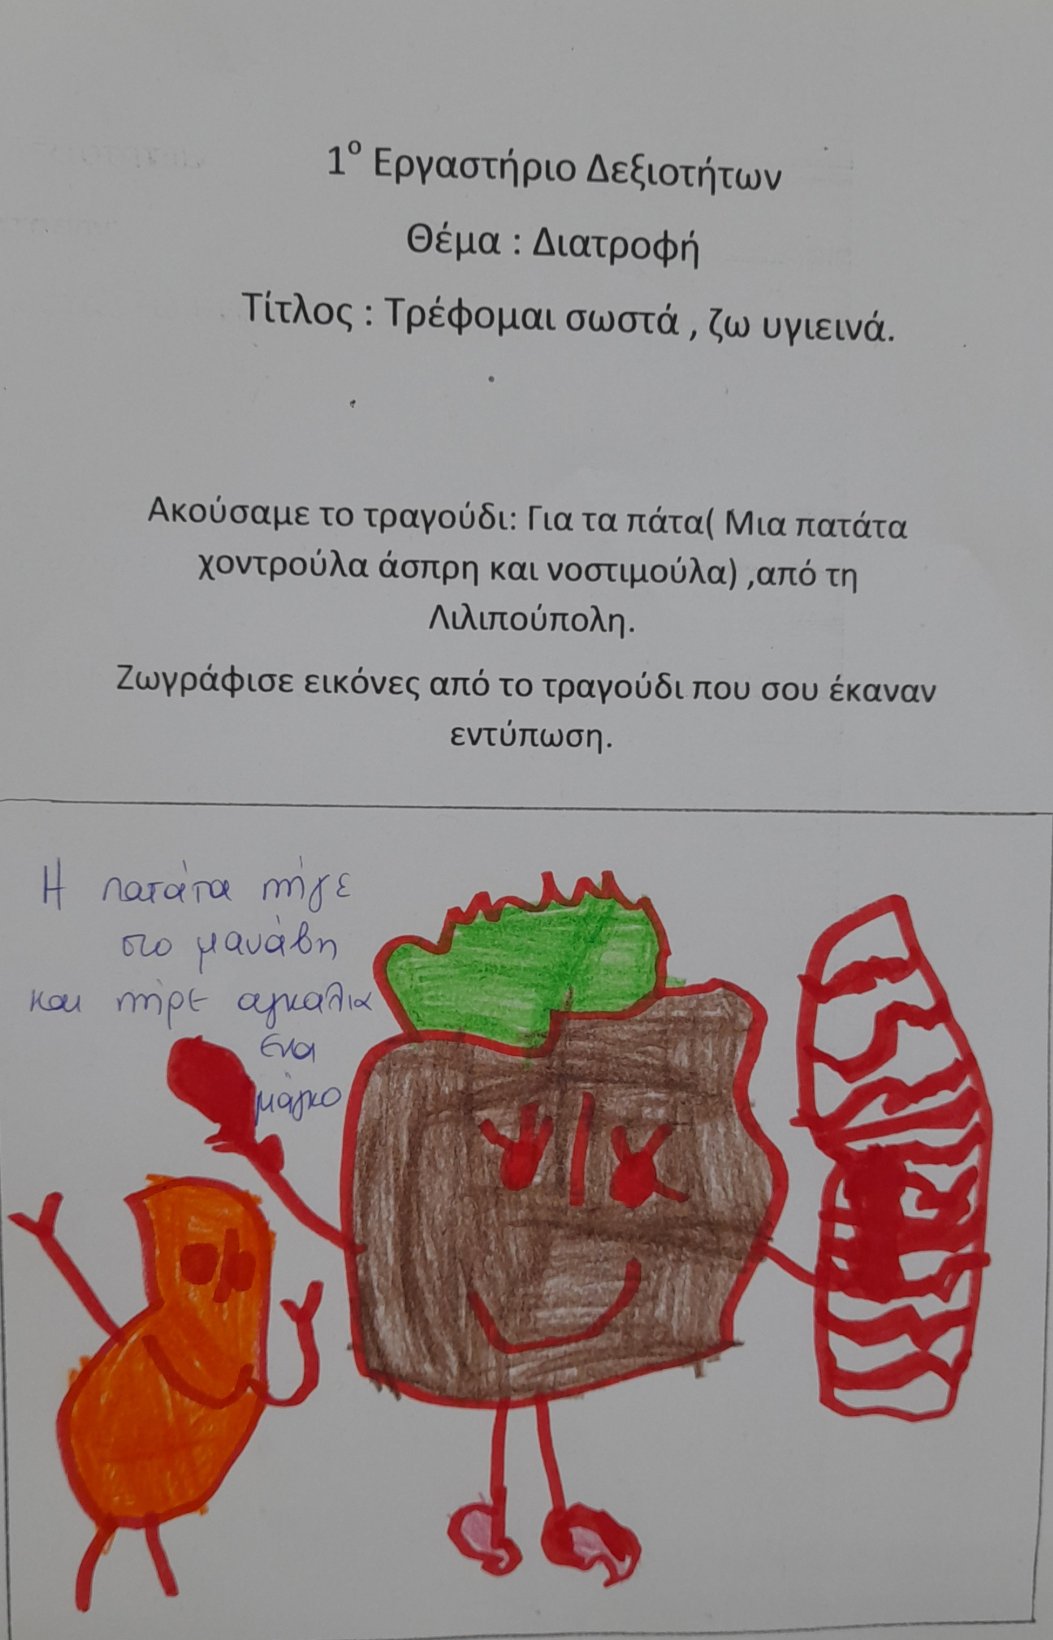 1ο Εργαστήριο Δεξιοτήτων
Θέμα : Διατροφή
Τίτλος : Τρέφομαι σωστά , ζω υγιεινά.
Ακούσαμε το τραγούδι: Για τα πάτα( Μια πατάτα
χοντρούλα άσπρη και νοστιμούλα) ,από τη
Λιλιπούπολη.
Ζωγράφισε εικόνες από το τραγούδι που σου έκαναν
εντύπωση.
Η πατάτα πήγε
στο μανάβη
και πήρε αγκαλια
ενα
μάγκο